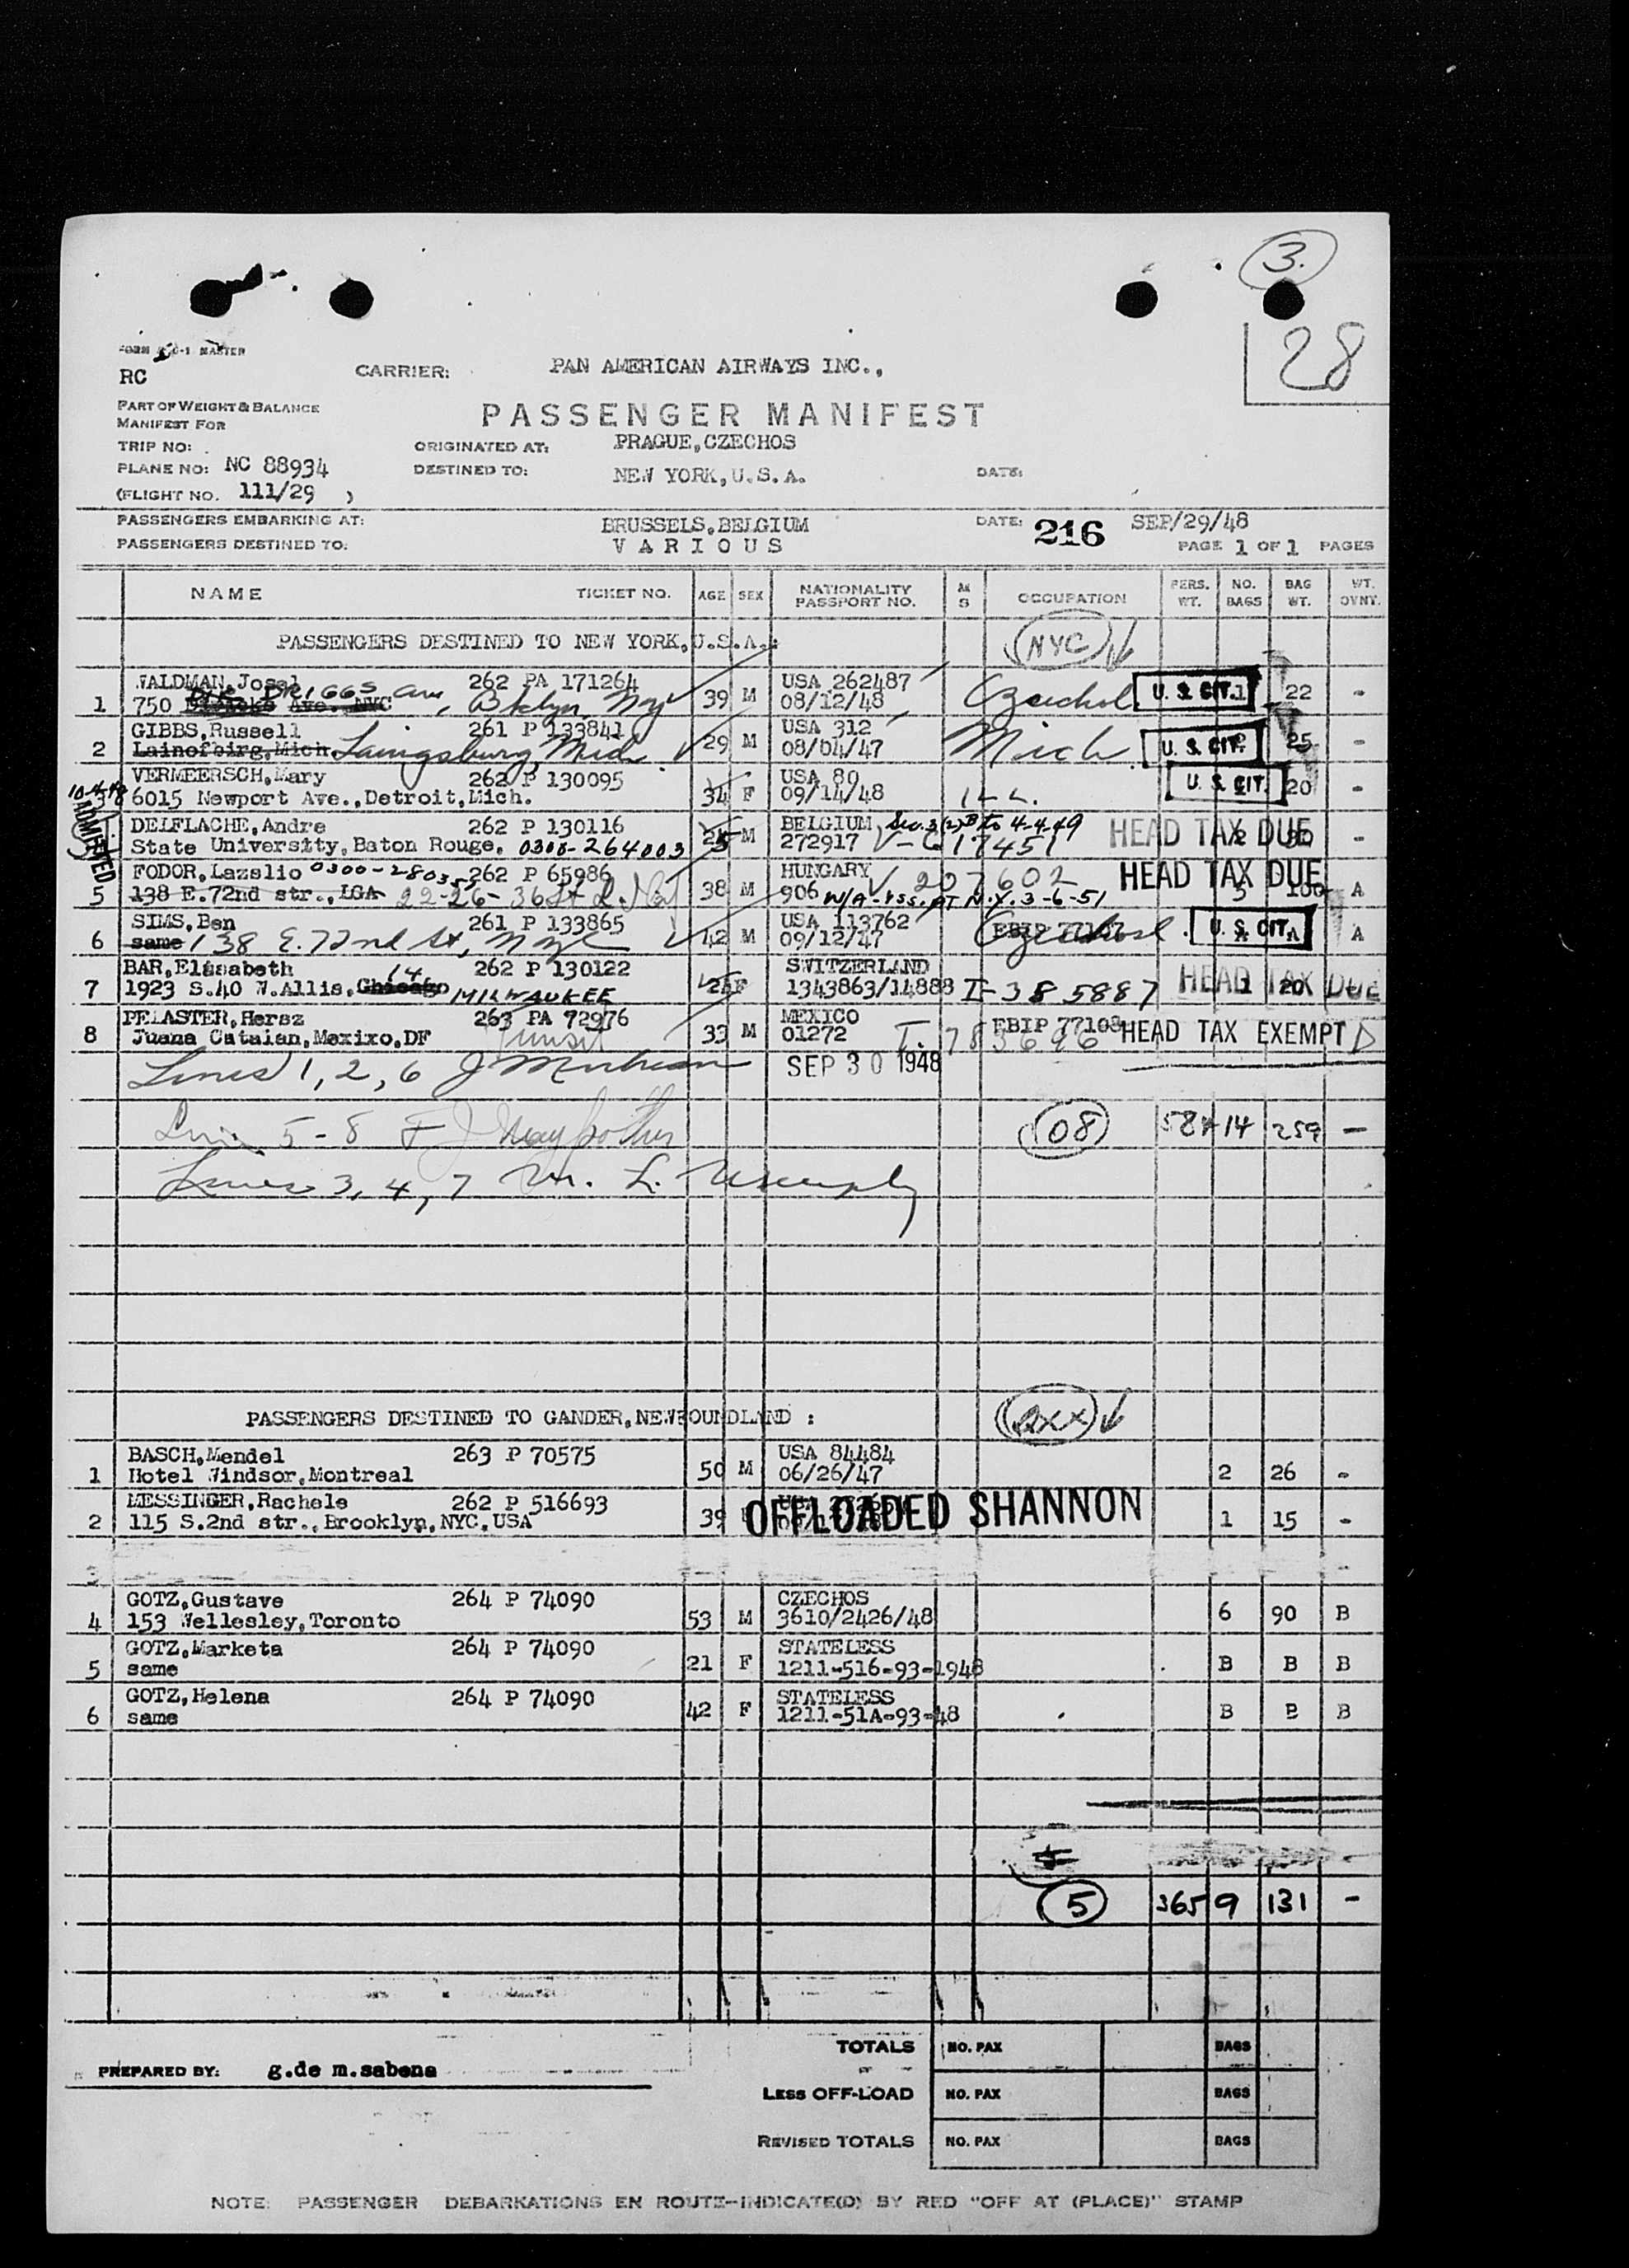 3.
28
FORM MASTER
RC
CARRIER: PAN AMERICAN AIRWAYS INC.,
PART OF WEIGHT & BALANCE
MANIFEST FOR
PASSENGER MANIFEST
TRIP NO:
ORIGINATED AT: PRAGUE,CZECHOS
PLANE NO: NC 88934
DESTINED TO: NEW YORK,U.S.A.
DATE:
(FLIGHT NO. 111/29 )
PASSENGERS EMBARKING AT: BRUSSELS,BELGIUM
DATE: 216 SEP/29/48
PASSENGERS DESTINED TO: VARIOUS
PAGE 1 OF 1 PAGES
NAME TICKET NO. AGE SEX NATIONALITY PASSPORT NO. M S OCCUPATION PERS. WT. NO. BAGS BAG WT. WT. OVNT.
PASSENGERS DESTINED TO NEW YORK,U.S.A.: NYC
WALDMAN,Josel 262 PA 171264 USA 262487
1 750 DRIGGS Ave, Bklyn, NY 39 M 08/12/48 Czechosl. U. S. CIT. 1 22 -
GIBBS,Russell 261 P 133841 USA 312
2 Lainofbirg,Mich Laingsburg, Mich. 29 M 08/04/47 Mich. U. S. CIT. 25 -
VERMEERSCH,Mary 262 P 130095 USA 80
3 6015 Newport Ave.,Detroit,Mich. 34 F 09/14/48 ILL. U. S. CIT. 20 -
ADMITTED
DELFLACHE,Andre 262 P 130116 BELGIUM Sec. 3(2) B to 4-4-49
State University,Baton Rouge, 0300-264003 25 M 272917 V-617451 HEAD TAX DUE 2 -
FODOR,Lazslio 262 P 65986 HUNGARY V 207602
5 138 E.72nd str.,LGA 22-26-36 St 38 M 906 N.Y. 3-6-51 HEAD TAX DUE 5 100 A
SIMS,Ben 261 P 133865 USA 113762
6 same 138 E. 72nd St, NYC 42 M 09/12/47 Czechosl. U. S. CIT. A A
BAR,Elisabeth 262 P 130122 SWITZERLAND
7 1923 S.40 W.Allis,Chicago 14 MILWAUKEE F 1343863/14888 I-385887 HEAD TAX DUE 1 20
PELASTER,Hersz 263 PA 72976 MEXICO EBIP 77108
8 Juana Catalan,Mexixo,DF 33 M 01272 I. 783696 HEAD TAX EXEMPT
Lines 1, 2, 6 SEP 30 1948
5-8 08 584 14 259 -
Lines 3, 4, 7
PASSENGERS DESTINED TO GANDER,NEWFOUNDLAND : QXX
BASCH,Mendel 263 P 70575 USA 84484
1 Hotel Windsor,Montreal 50 M 06/26/47 2 26 -
MESSINGER,Rachele 262 P 516693
2 115 S.2nd str.,Brooklyn,NYC,USA 39 OFFLOADED SHANNON 1 15 -
GOTZ,Gustave 264 P 74090 CZECHOS
4 153 Wellesley,Toronto 53 M 3610/2426/48 6 90 B
GOTZ,Marketa 264 P 74090 STATELESS
5 same 21 F 1211-516-93-1948 B B B
GOTZ,Helena 264 P 74090 STATELESS
6 same 42 F 1211-51A-93-48 B B B
5 365 9 131 -
TOTALS NO. PAX BAGS
PREPARED BY: g.de m.sabena
LESS OFF-LOAD NO. PAX BAGS
REVISED TOTALS NO. PAX BAGS
NOTE: PASSENGER DEBARKATIONS EN ROUTE-INDICATE(D) BY RED "OFF AT (PLACE)" STAMP